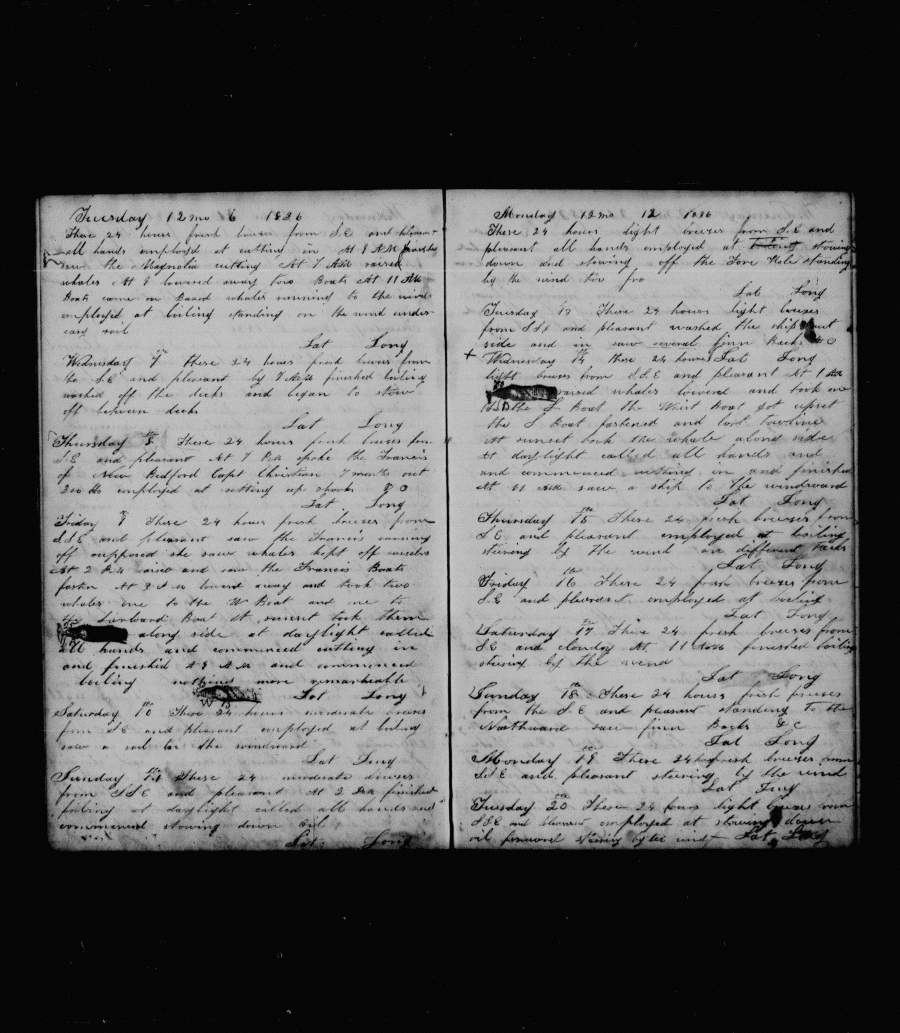 Tuesday 12 mo 6 1836
These 24 hours fresh breezes from S.E and pleasant
all hands employed at cutting in At 8 AM finished
saw the Magnolia cutting At 7 AM raised
whales At 8 lowered away two Boats At 11 AM
Boats came on Board whales running to the wind
employed at boiling standing on the wind under
easy sail
Lat Long
Wednesday 7 these 24 hours fresh breezes from
the S.E and pleasant by 7 AM finished boiling
washed off the decks and began to stow
off between decks
Lat Long
Thursday 8 These 24 hours fresh breezes from
S.E and pleasant At 7 PM spoke the Francis
of New Bedford Capt Christian 7 months out
200 bb employed at cutting up
Lat Long
Friday 9 These 24 hours fresh breezes from
S.S.E and pleasant saw the Francis running
off supposed she saw whales kept off ourselves
At 2 PM and saw the Francis Boats
fast At 3 PM lowered away and took two
whales one to the W Boat and one to
the Larboard Boat At sunset took them
along side at daylight called
all hands and commenced cutting in
and finished at 8 AM and commenced
boiling nothing more remarkable
W B Lat Long
Saturday 10 These 24 hours moderate breezes
from S.E and pleasant employed at boiling
saw a sail to the windward
Lat Long
Sunday 11 These 24 moderate breezes
from S.S.E and pleasant At 2 PM finished
boiling at daylight called all hands and
commenced stowing down oil
Lat Long
Monday 12 mo 12 1836
These 24 hours light breezes from S.E and
pleasant all hands employed at stowing
down and stowing off the Fore Hole standing
by the wind
Lat Long
Tuesday 13 These 24 hours light breezes
from S.S.E and pleasant washed the ship
side and in saw several finn Backs
+ Wednesday 14 these 24 hours Lat Long
light breezes from S.S.E and pleasant At 1 AM
raised whales lowered and took one
to the S Boat the Waist Boat got upset
the S Boat fastened and lost towline
At sunset took the whale along side
At daylight called all hands and
and commenced cutting in and finished
At 11 AM saw a ship to the windward
Lat Long
Thursday 15 These 24 fresh breezes from
S.E and pleasant employed at boiling
steering by the wind on different tacks
Lat Long
Friday 16 These 24 fresh breezes from
S.E and pleasant employed at boiling
Lat Long
Saturday 17 These 24 fresh breezes from
S.E and cloudy At 11 finished boiling
steering by the wind
Lat Long
Sunday 18 These 24 hours fresh breezes
from the S.E and pleasant standing to the
Northward saw finn Backs & C
Lat Long
Monday 19 These 24 hours fresh breezes from
S.S.E and pleasant steering by the wind
Lat Long
Tuesday 20 These 24 hours light breezes from
S.S.E and pleasant employed at stowing down
oil forward steering by the wind Lat Long